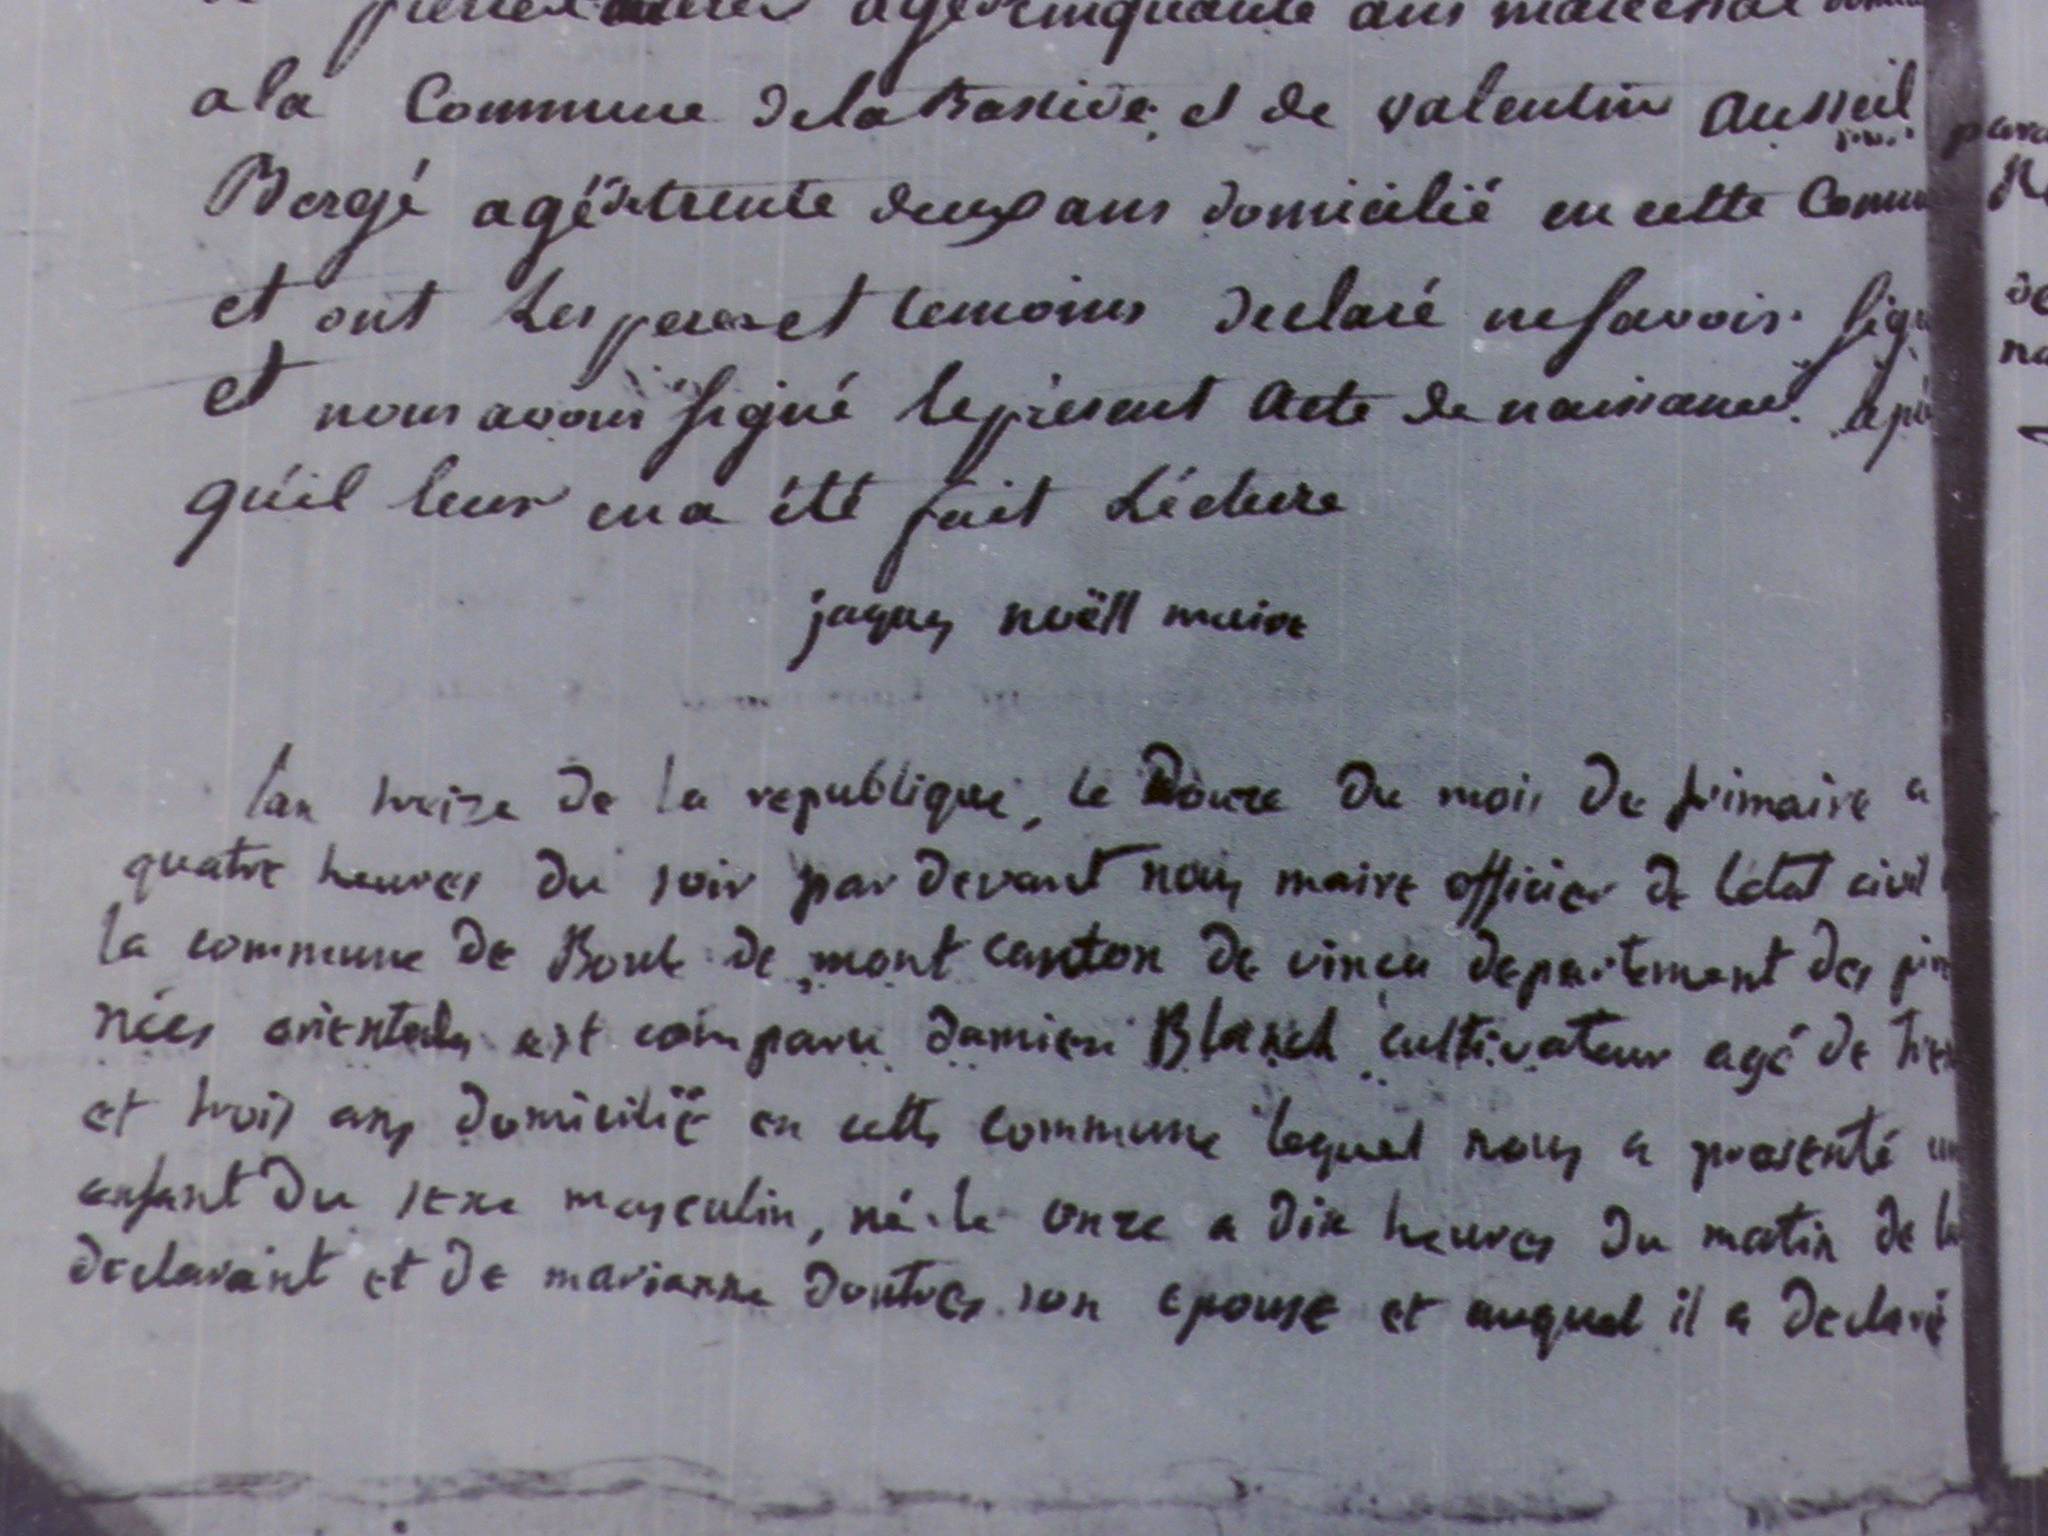 agé de cinquante ans marechal
a la Commune de la Bastide et de valentin Ausseil
Bergé agé de trente deux ans domicilié en cette Commu
et ont Les peres et temoins declaré ne savoir sign
et nous avons signé le present Acte de naissance apré
qu'il leur en a été fait Lécture
jaques noëll maire
lan treize de la republique, le Douze du mois de frimaire a
quatre heures du soir par devant nous maire officier de letat civil
la commune de Boule de mont canton de vinca departement des pire
nées orientales est comparu damien Blanch cultivateur agé de tren
et trois ans domicilié en cette commune lequel nous a presenté un
enfant du sexe masculin, né le onze a dix heures du matin de lui
declarant et de marianne dontres son epouse et auquel il a declaré